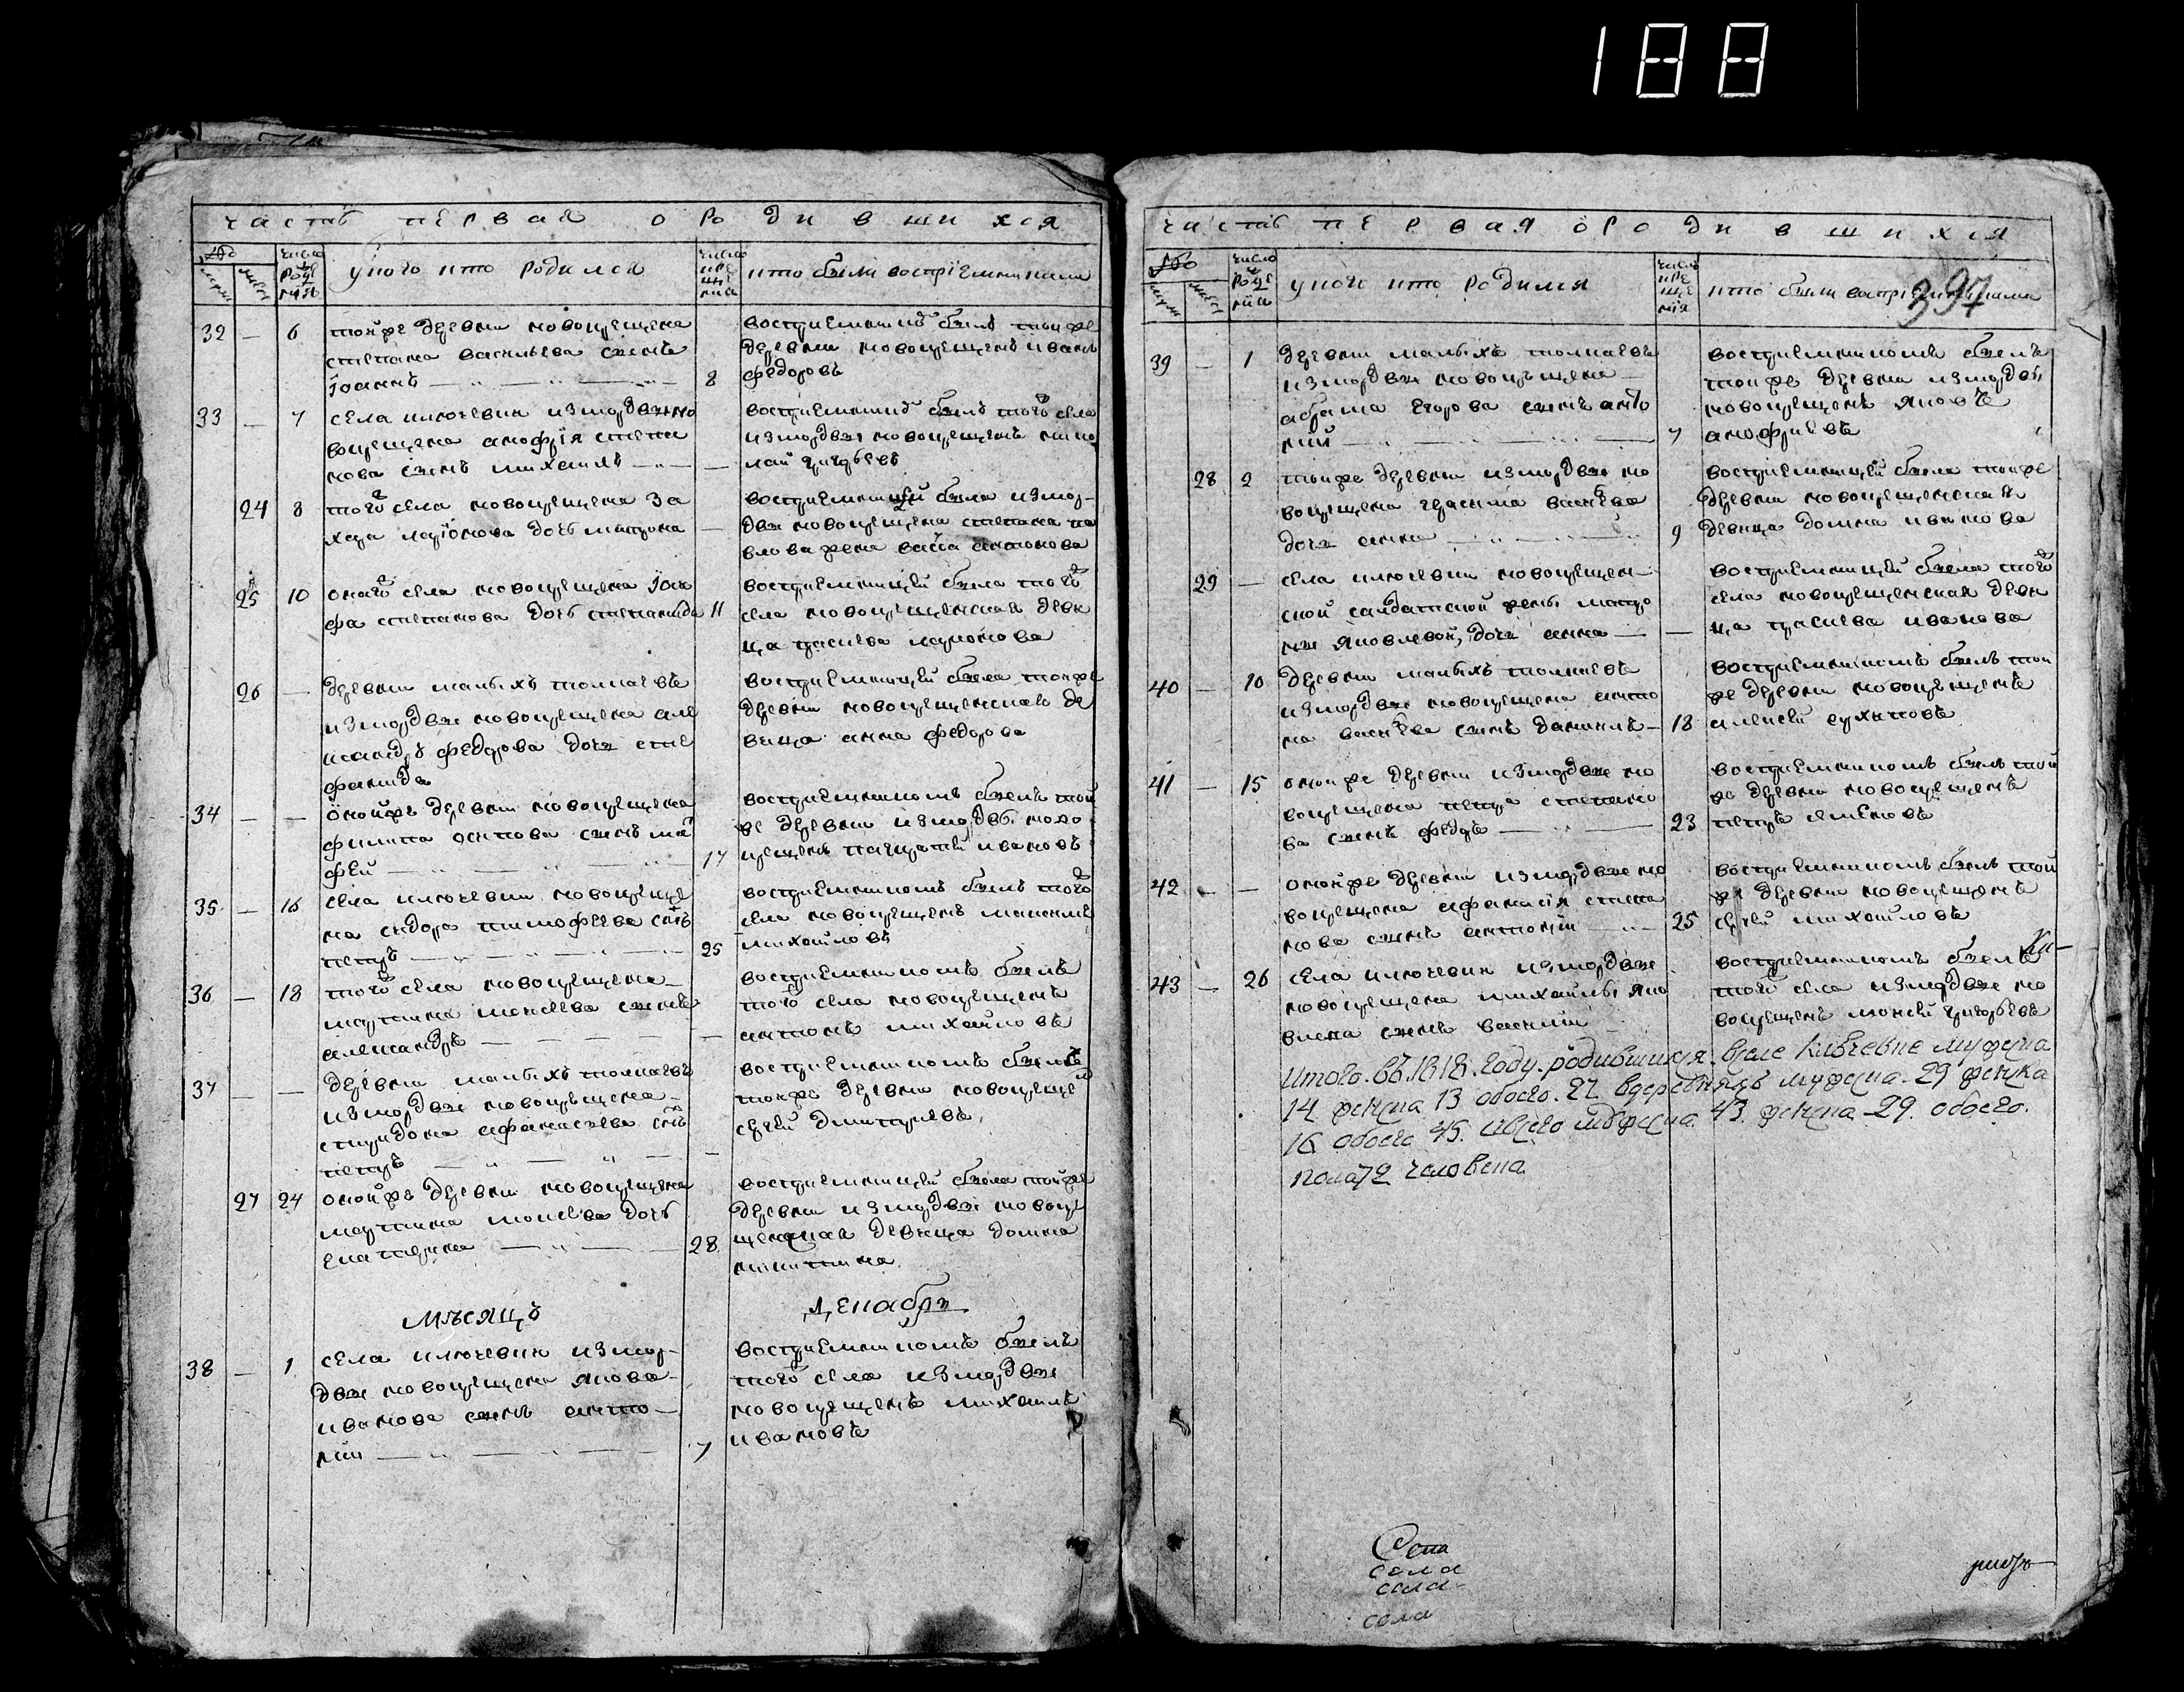 188
часть первая о родившихся
№
число рожде нія
у кого кто родился
число кре ще нія
кто были воспріемниками
32 — 6 тойже деревни новокрещена
степана васильева сынъ
іоаннъ 8
воспріемникъ былъ тойже
деревни новокрещенъ иванъ
федоровъ
33 — 7 села ключевки измордвы но
вокрещена анофрія степа
нова сынъ михаилъ —
воспріемникъ былъ того села
измордвы новокрещенъ нико
лай григорьевъ
24 8 того села новокрещена за
хара ларіонова дочь матрона —
воспріемницей была измор-
двы новокрещена степана па
влова жена васса антонова
25 10 онаго села новокрещена іоси
фа степанова дочь степанида 11
воспріемницей была того
села новокрещенская деви
ца праскева ларионова
26 — деревни малыхъ толкаевъ
измордвы новокрещена але
ксандра федорова дочь сте
фанида
воспріемницей была тойже
деревни новокрещенская де
вица анна федорова
34 — — онойже деревни новокрещена
филипа осипова сынъ мат
фей 17
воспріемникомъ былъ той
же деревни измордвы ново
крещенъ панкратей ивановъ
35 — 16 села ключевки новокреще
на сидора тимофеева сынъ
петръ 25
воспріемникомъ былъ того
села новокрещенъ максимъ
михайловъ
36 — 18 того села новокрещена
мартина моисеева сынъ
александръ —
воспріемникомъ былъ
того села новокрещенъ
антонъ михайловъ
37 — — деревни малыхъ толкаевъ
измордвы новокрещена
спиридона афанасьева сынъ
петръ —
воспріемникомъ былъ
тойже деревни новокреще
сергей дмитриевъ
27 24 онойже деревни новокрещена
мартина моисева дочь
екатерина 28
воспріемницей была тойже
деревни измордвы новокре
щенская девица домна
никитина
мѣсяцъ декабрь
38 — 1 села ключевки измор-
двы новокрещена якова
иванова сынъ анто-
ній 7
воспріемникомъ былъ
того села измордвы
новокрещенъ михаилъ
ивановъ
часть первая о родившихся
№
число рожде нія
у кого кто родился
число кре ще нія
кто были воспріемниками
397
39 — 1 деревни малыхъ толкаевъ
измордвы новокрещена
абрама егорова сынъ анто
ній 7
воспріемникомъ былъ
тойже деревни измордвы
новокрещенъ яковъ
анофриевъ
28 2 тойже деревни измордвы но
вокрещена герасима васильева
дочь анна 9
воспріемницей была тойже
деревни новокрещенская
девица домна иванова
29 — села ключевки новокрещен-
ской салдатской жены матро
ны яковлевой дочь анна —
воспріемницей была того
села новокрещенская деви
ца праскева иванова
40 — 10 деревни малыхъ толкаевъ
измордвы новокрещена анто
на васильева сынъ даниилъ 18
воспріемникомъ былъ той
же деревни новокрещенъ
алексей архиповъ
41 — 15 онойже деревни измордвы но
вокрещена петра степано
ва сынъ федоръ 23
воспріемникомъ былъ той
же деревни новокрещенъ
петръ семеновъ
42 — — онойже деревни измордвы но
вокрещена афанасія степа
нова сынъ антоній 25
воспріемникомъ былъ той
же деревни новокрещенъ
сергей михайловъ
43 — 26 села ключевки измордвы
новокрещена михайлы яко
влева сынъ василій
воспріемникомъ былъ
того села измордвы но
вокрещенъ моисей григорьевъ
Итого въ 1818 году родившихся в селе Ключевке мужеска
14 женска 13 обоего 27 в деревняхъ мужеска 29 женска
16 обоего 45 а всего мужеска 43 женска 29 обоего
пола 72 человека
Села
села
села
села